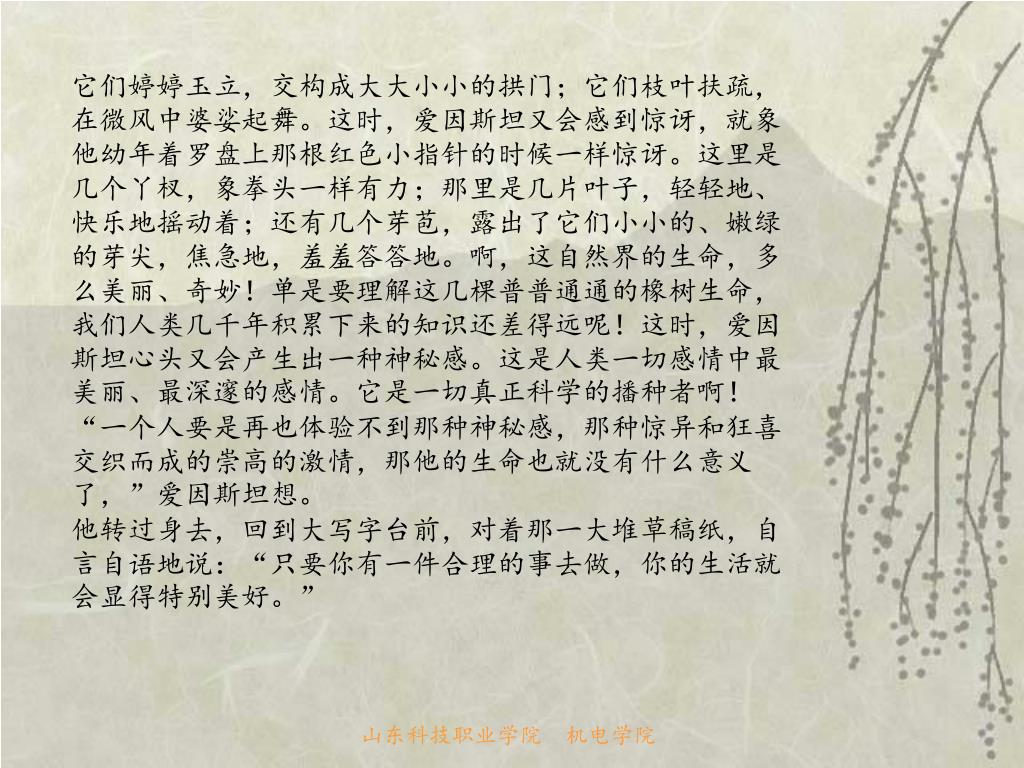 它们婷婷玉立，交构成大大小小的拱门；它们枝叶扶疏，
在微风中婆娑起舞。这时，爱因斯坦又会感到惊讶，就象
他幼年着罗盘上那根红色小指针的时候一样惊讶。这里是
几个丫杈，象拳头一样有力；那里是几片叶子，轻轻地、
快乐地摇动着；还有几个芽苞，露出了它们小小的、嫩绿
的芽尖，焦急地，羞羞答答地。啊，这自然界的生命，多
么美丽、奇妙！单是要理解这几棵普普通通的橡树生命，
我们人类几千年积累下来的知识还差得远呢！这时，爱因
斯坦心头又会产生出一种神秘感。这是人类一切感情中最
美丽、最深邃的感情。它是一切真正科学的播种者啊！
“一个人要是再也体验不到那种神秘感，那种惊异和狂喜
交织而成的崇高的激情，那他的生命也就没有什么意义
了，”爱因斯坦想。
他转过身去，回到大写字台前，对着那一大堆草稿纸，自
言自语地说：“只要你有一件合理的事去做，你的生活就
会显得特别美好。”
山东科技职业学院　机电学院